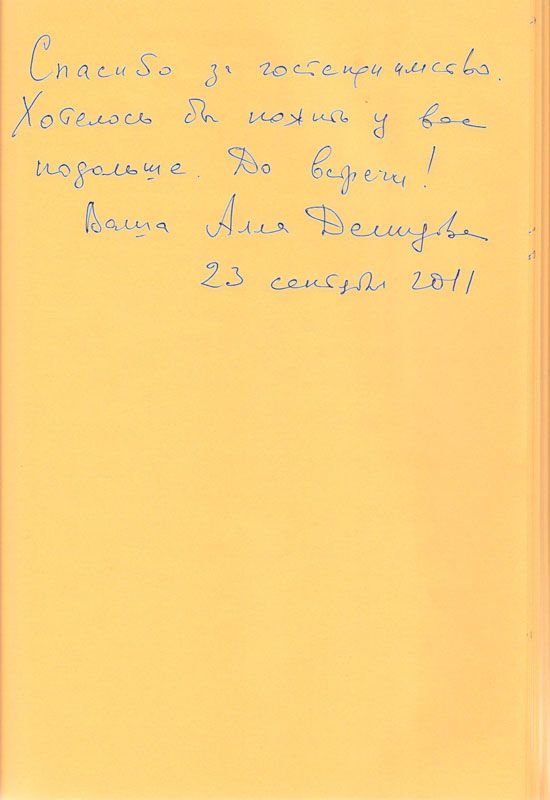 Спасибо за гостеприимство.
Хотелось бы пожить у вас
подольше. До встречи!
Ваша Алла Демидова
23 сентября 2011